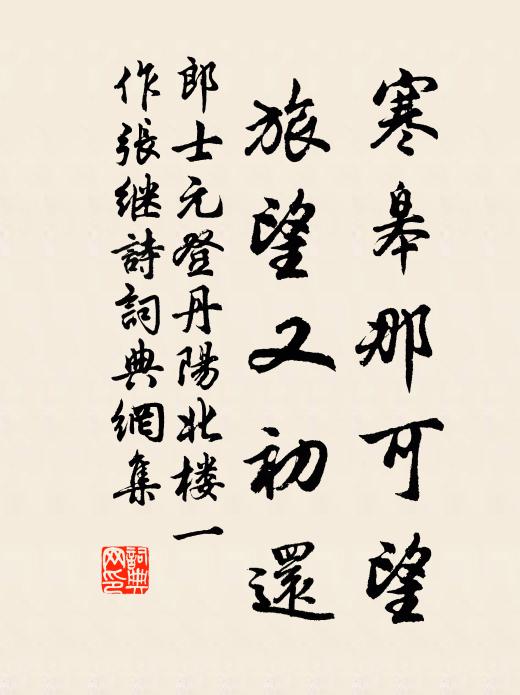 寒皋那可望
旅望又初還
郎士元登丹陽北楼一
作張继詩詞典網集
詞典
网印